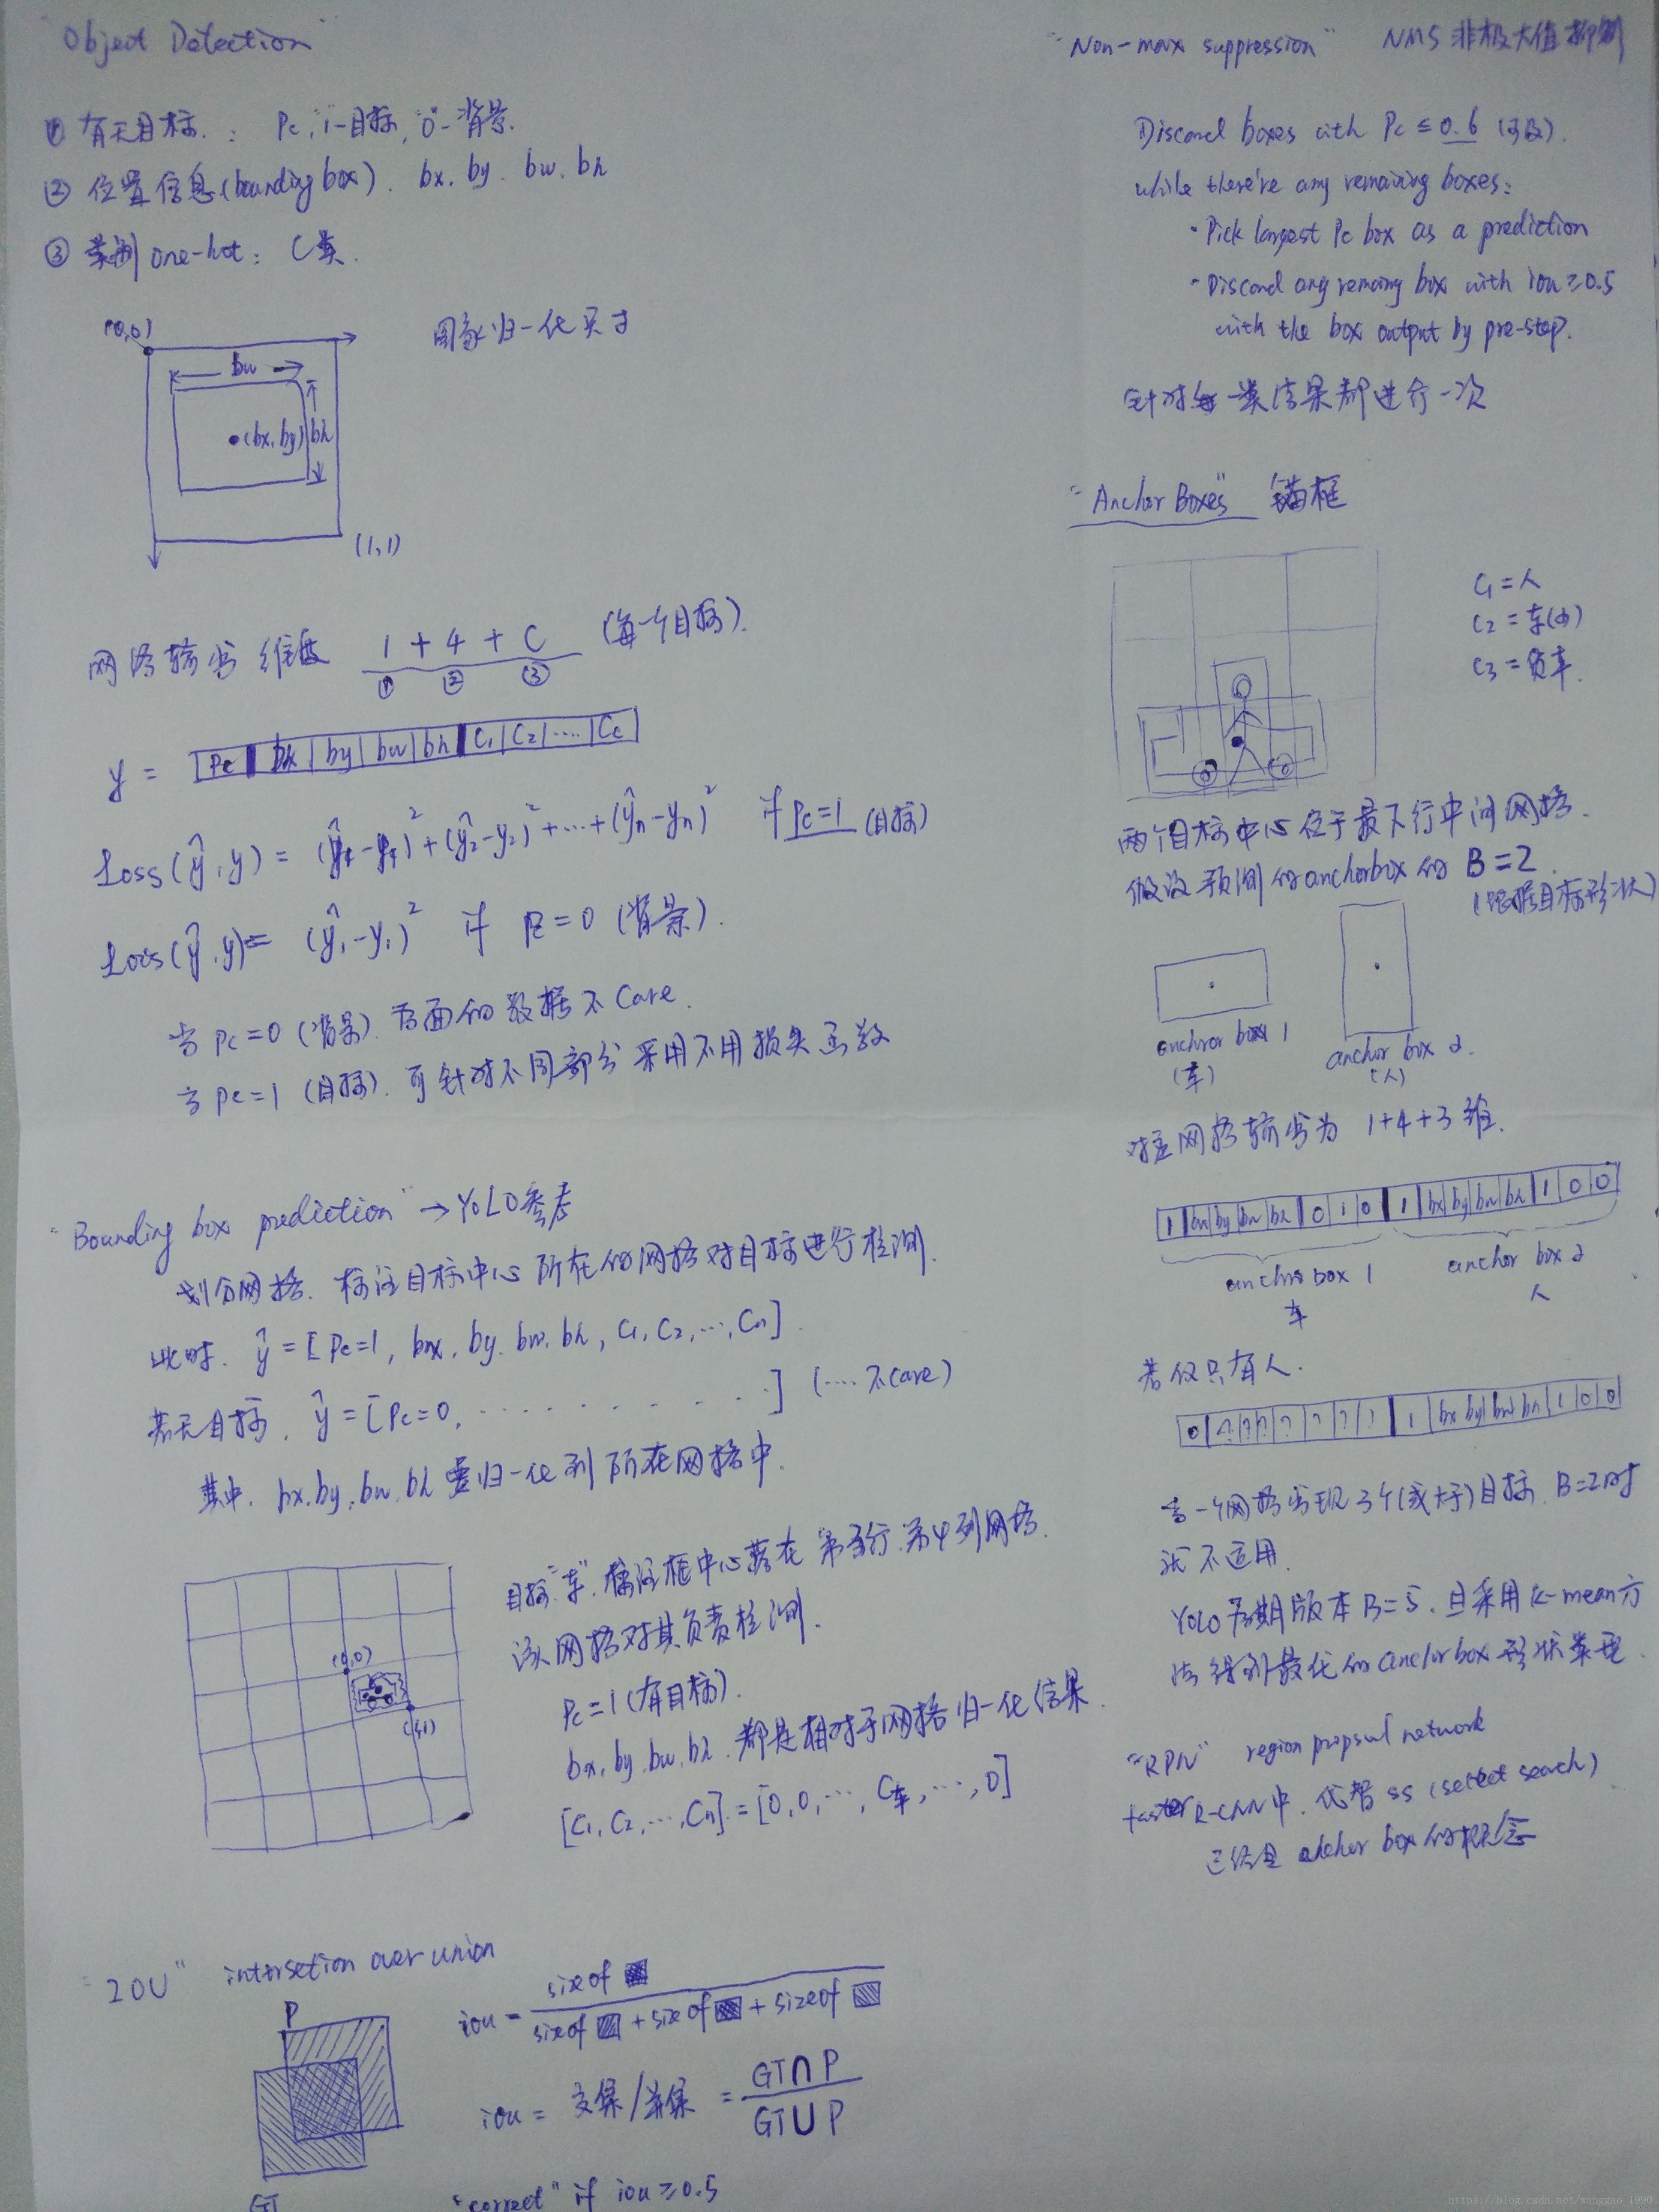 "Object Detection"
① 有无目标: Pc, "1"-目标, "0"-背景.
② 位置信息(bounding box). bx. by. bw. bh
③ 类别 one-hot: C类.
(0,0)
图象归一化尺寸
bw
(bx, by)
bh
(1,1)
网络输出维度 1 + 4 + C (每一个目标).
① ② ③
y = Pc bx by bw bh C1 C2 .... Cc
Loss(ŷ, y) = (ŷ1-y1)² + (ŷ2-y2)² + ... + (ŷn-yn)² if Pc=1 (目标)
Loss(ŷ, y) = (ŷ1-y1)² if Pc=0 (背景).
当 Pc=0 (背景). 后面的数据不 Care.
当 Pc=1 (目标). 可针对不同部分采用不用损失函数
"Bounding box prediction" → YOLO参考
划分网格. 标注目标中心所在的网格对目标进行检测.
此时. ŷ = [Pc=1, bx, by, bw, bh, C1, C2, ..., Cn]
若无目标, ŷ = [Pc=0, . . . . . . . . .] (.... 不care)
其中. bx. by. bw. bh 要归一化到所在网格中.
目标"车". 标注框中心落在 第3行. 第4列网格.
该网格对其负责检测.
(0,0)
Pc=1 (有目标).
(1,1)
bx, by, bw, bh. 都是相对于网格归一化结果.
[C1, C2, ..., Cn] = [0, 0, ..., C车, ..., 0]
"IOU" intersetion over union
P
iou = size of / size of + size of + size of
iou = 交集/并集 = GT∩P / GT∪P
GT
"correct" if iou ≥ 0.5
"Non-max suppression" NMS 非极大值抑制
Discard boxes with Pc ≤ 0.6
while there're any remaining boxes:
· Pick largest Pc box as a prediction
· Discard any remaing box with iou ≥ 0.5
with the box output by pre-step.
针对每一类结果都进行一次
"Anchor Boxes" 锚框
C1 = 人
C2 = 车(小)
C3 = 货车.
两个目标中心位于最下行中间网格.
假设预测的anchorbox的 B=2.
(根据目标形状)
anchror box 1
(车)
anchor box 2.
(人)
对应网格输出为 1+4+3 维.
1 bx by bw bh 0 1 0 1 bx by bw bh 1 0 0
anchor box 1
车
anchor box 2
人
若仅只有人.
0 ? ? ? ? ? ? ? 1 bx by bw bh 1 0 0
若一个网格出现3个(或大于)目标. B=2时
就不适用.
YOLO 后期版本 B=5. 且采用 K-mean方
法得到最优的anchorbox形状
"RPN" region propsul network
faster R-CNN中. 代替 ss (select search)
anchor box的概念
https://blog.csdn.net/wangguo_1990